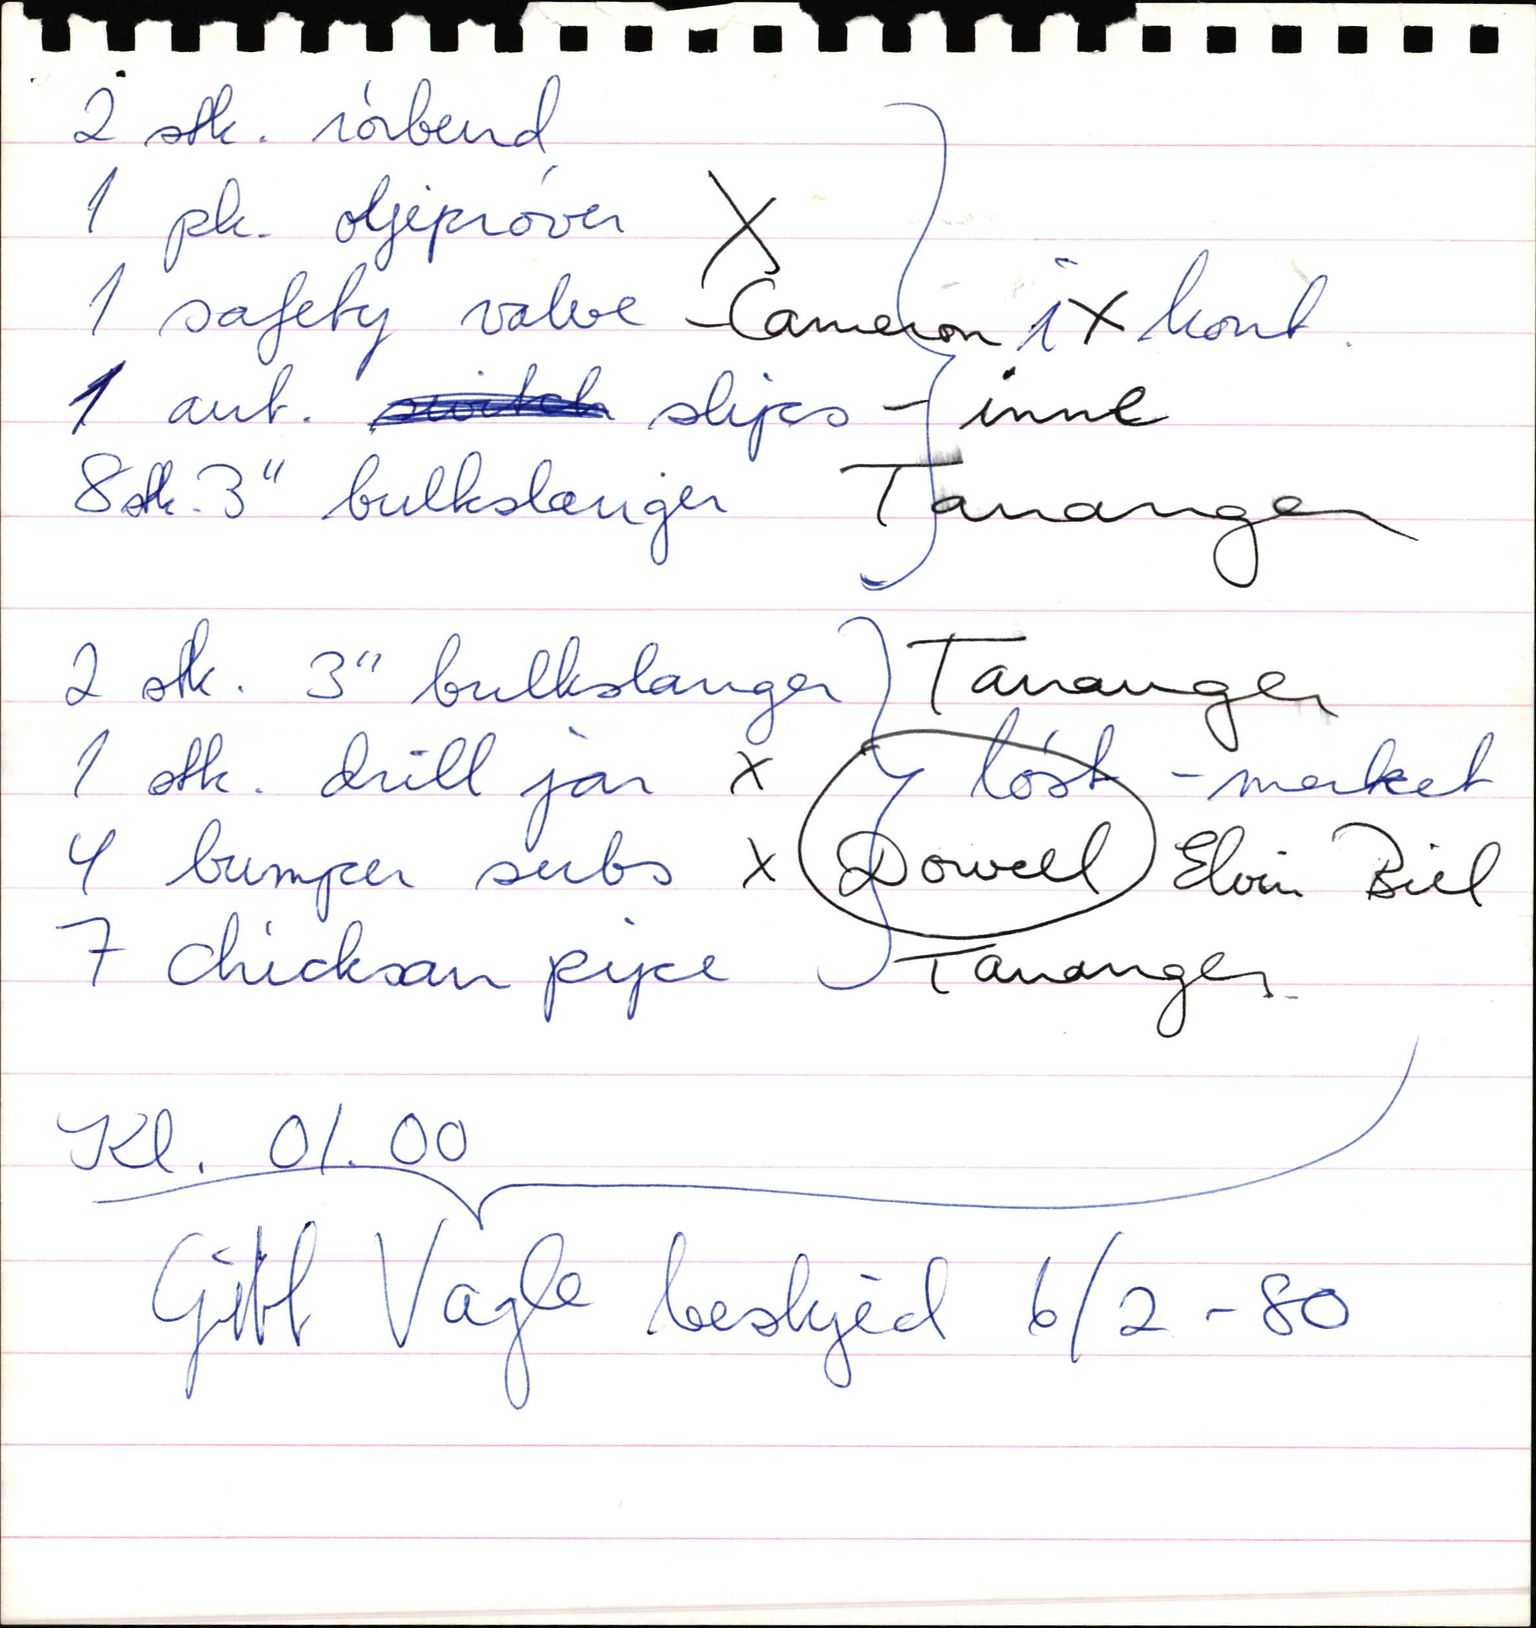 2 stk. rörbend
1 pk. oljepröver X
1 safety valve - Cameron i X kont.
1 aut. slips - inne
8 stk. 3" bulkslanger Tananger
2 stk. 3" bulkslanger Tananger
1 stk. drill jar x löst - merket
4 bumper subs x Dowell Elvin Biel
7 chicksan pipe Tananger
Kl. 01.00
Gitt Vagle beskjed 6/2 - 80